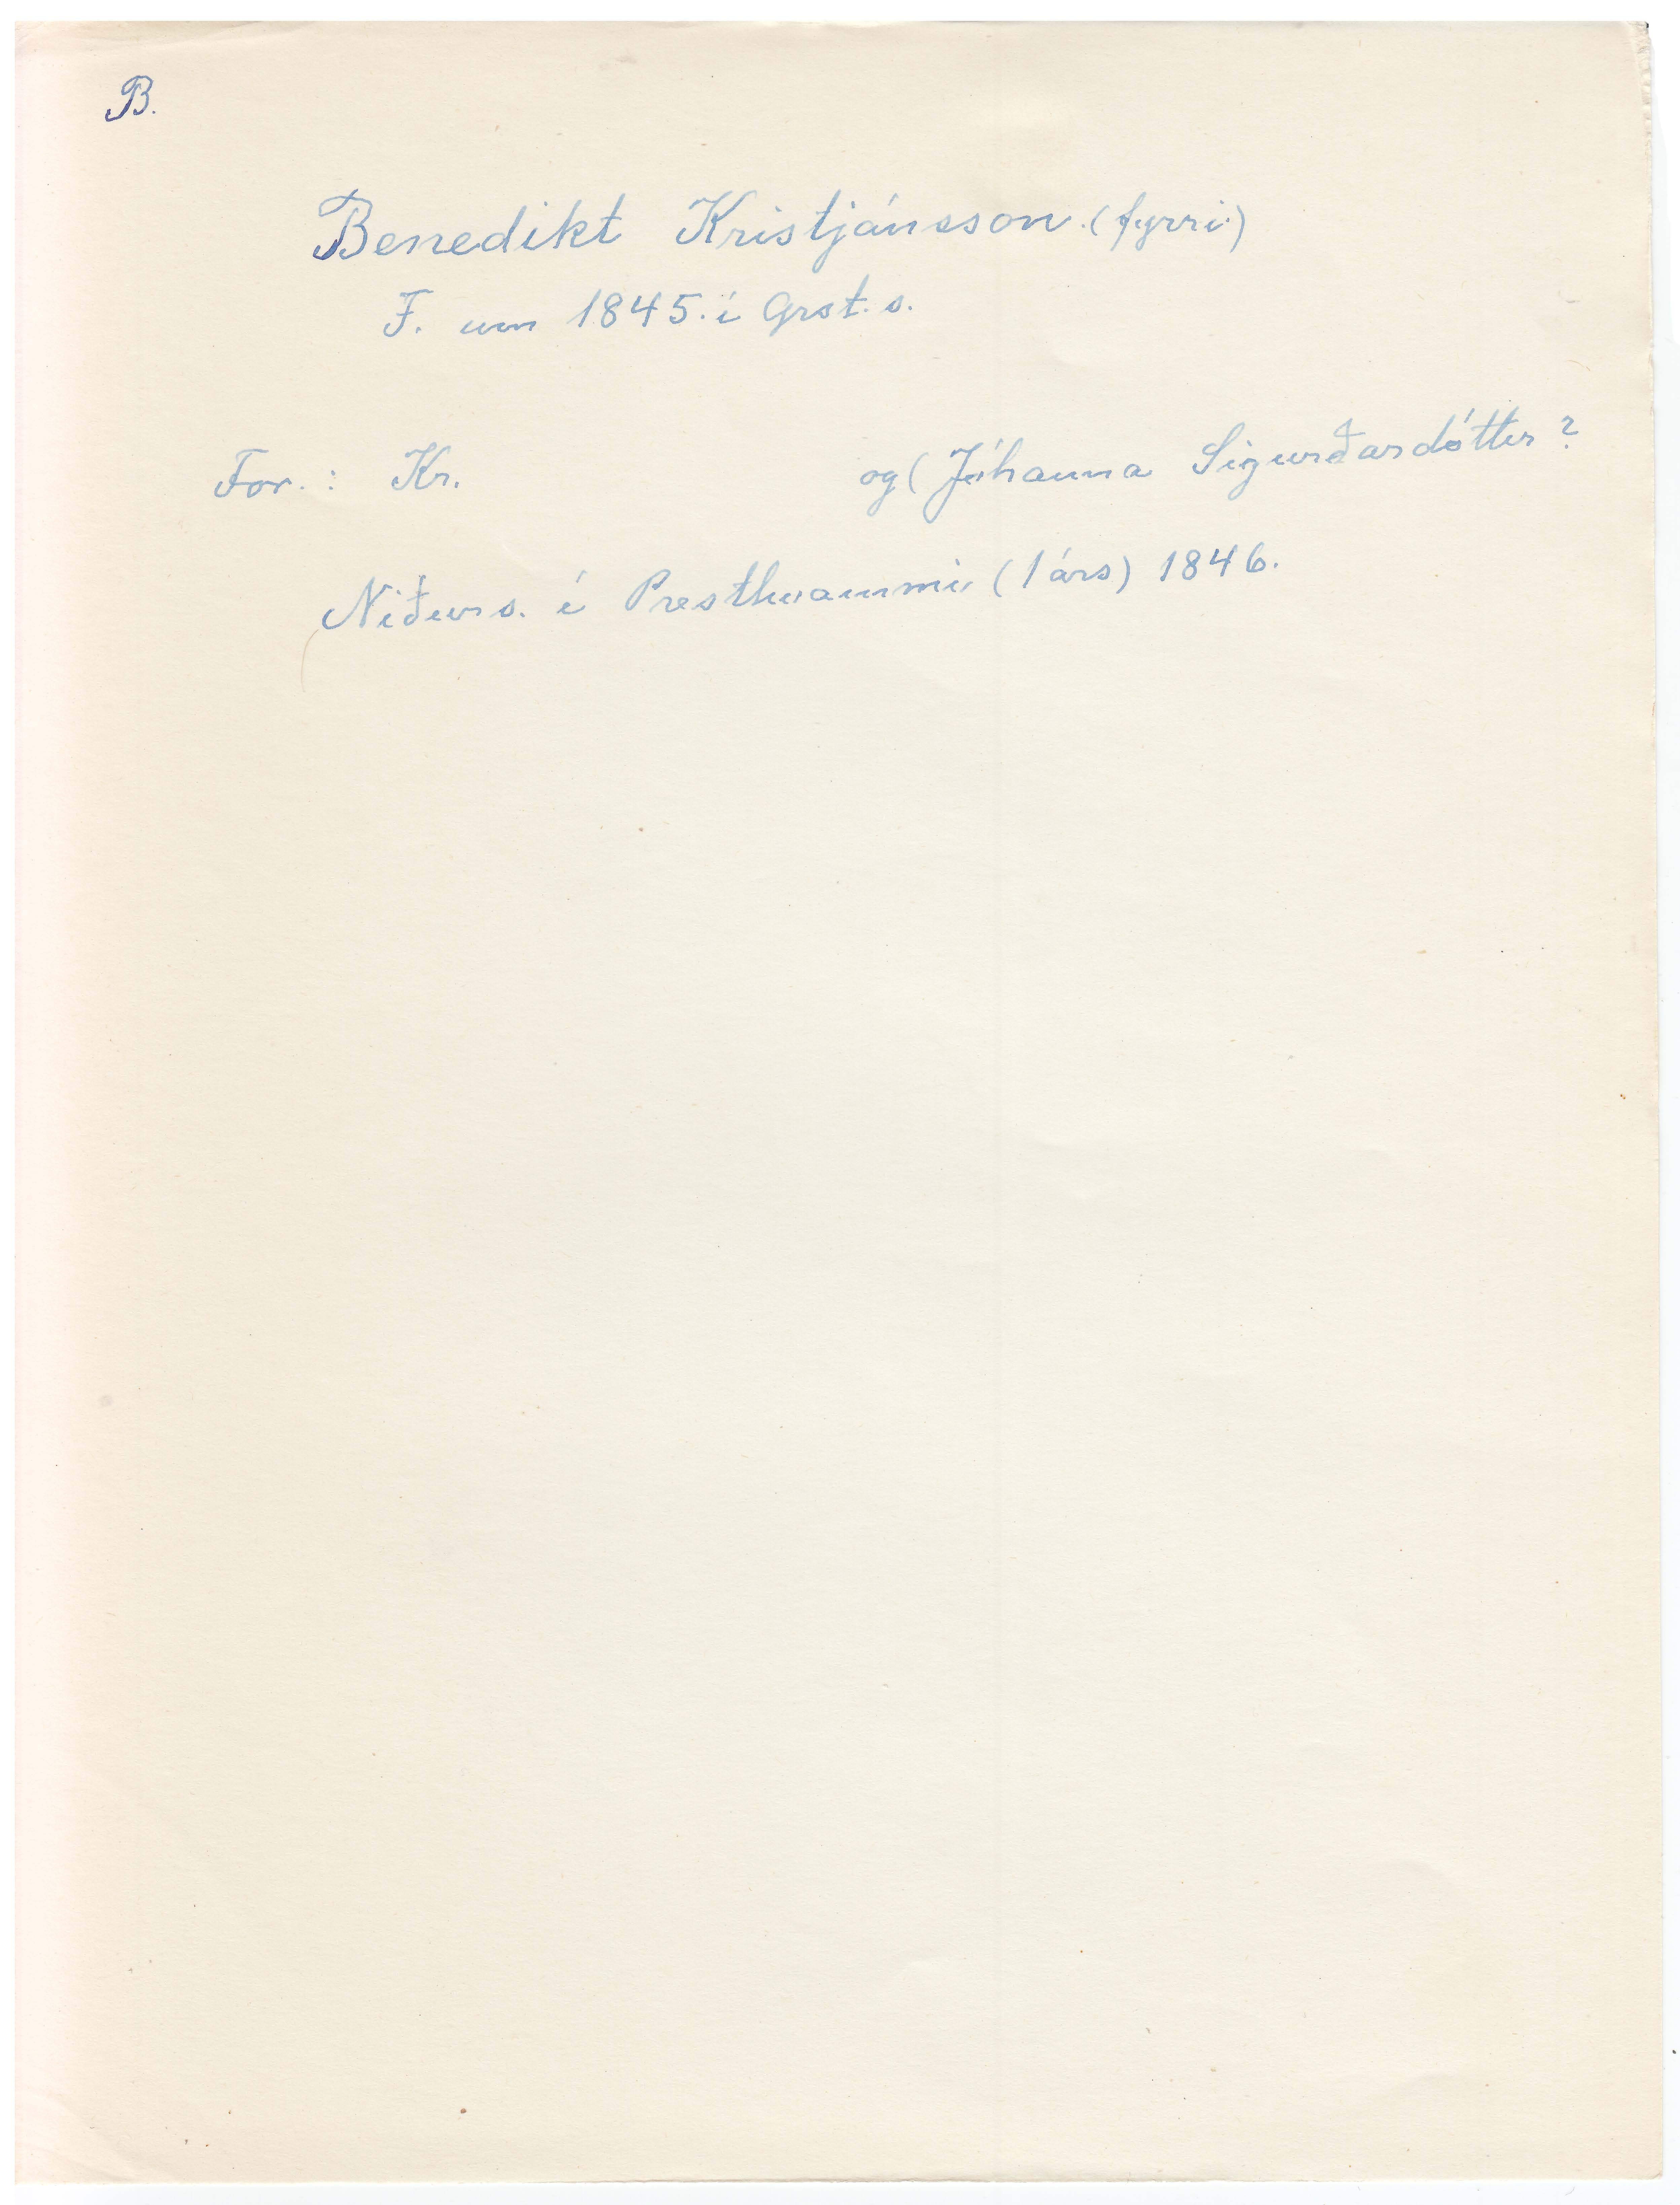 B.
Benedikt Kristjánsson. (fyrri)
F. um 1845. í Grst. s.
For. : Kr. og (Jóhanna Sigurðardóttir ?
Niðurs. í Presthvammi (1 árs) 1846.